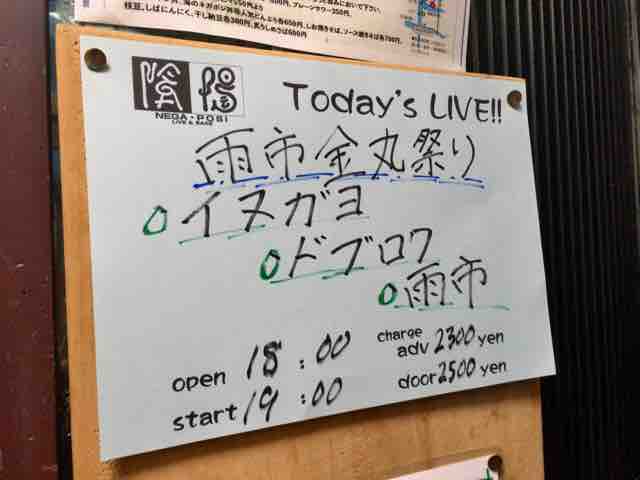 陰陽
NEGA・POSI
LIVE & BASE
Today's LIVE!!
雨市金丸祭り
○イヌガヨ
○ドブロク
○雨市
open 18:00
start 19:00
charge
adv 2300 yen
door 2500 yen